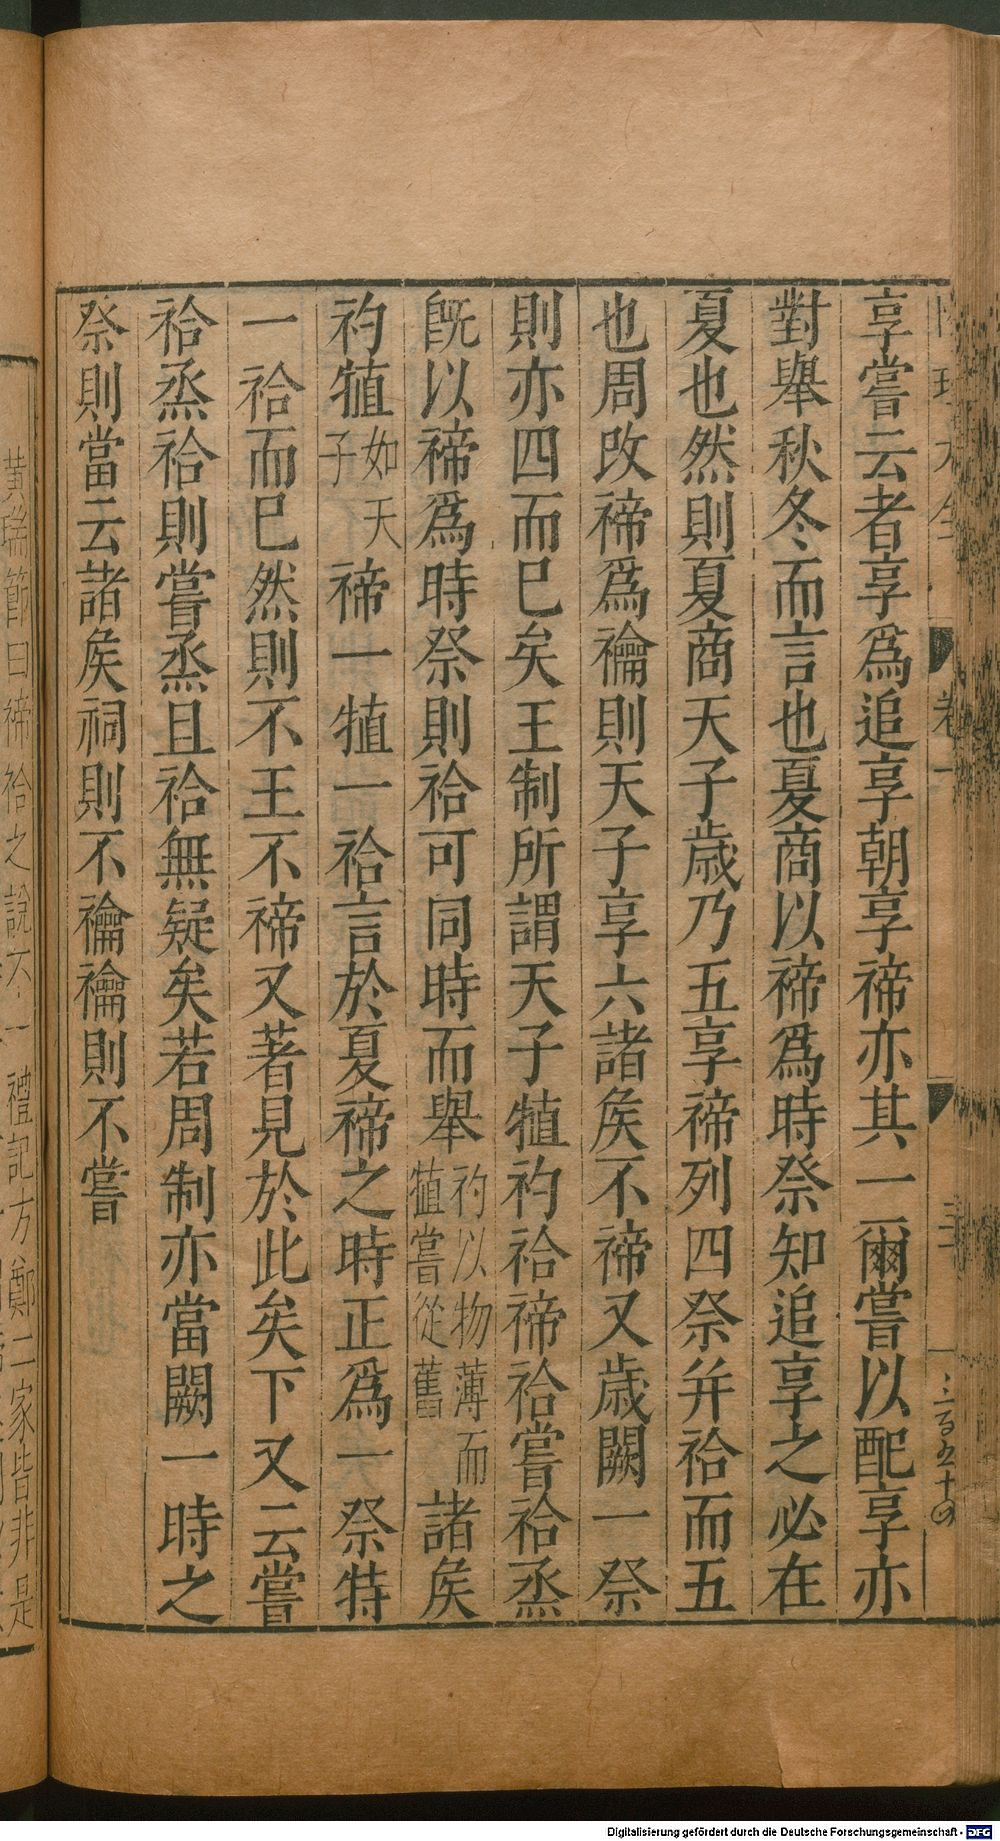 享嘗云者享爲追享朝享禘亦其一爾嘗以配享亦
對舉秋冬而言也夏商以禘爲時祭知追享之必在
夏也然則夏商天子歲乃五享禘列四祭并祫而五
也周改禘爲禴則天子享六諸矦不禘又歲闕一祭
則亦四而已矣王制所謂天子犆礿祫禘祫嘗祫烝
旣以禘爲時祭則祫可同時而舉礿以物薄而犆嘗從舊諸矦
礿犆如天子禘一犆一祫言於夏禘之時正爲一祭特
一祫而已然則不王不禘又著見於此矣下又云嘗
祫烝祫則嘗烝且祫無疑矣若周制亦當闕一時之
祭則當云諸矦祠則不禴禴則不嘗
黃瑞節曰禘祫之說不一禮記方鄭二家皆非是
Digitalisierung gefördert durch die Deutsche Forschungsgemeinschaft - DFG